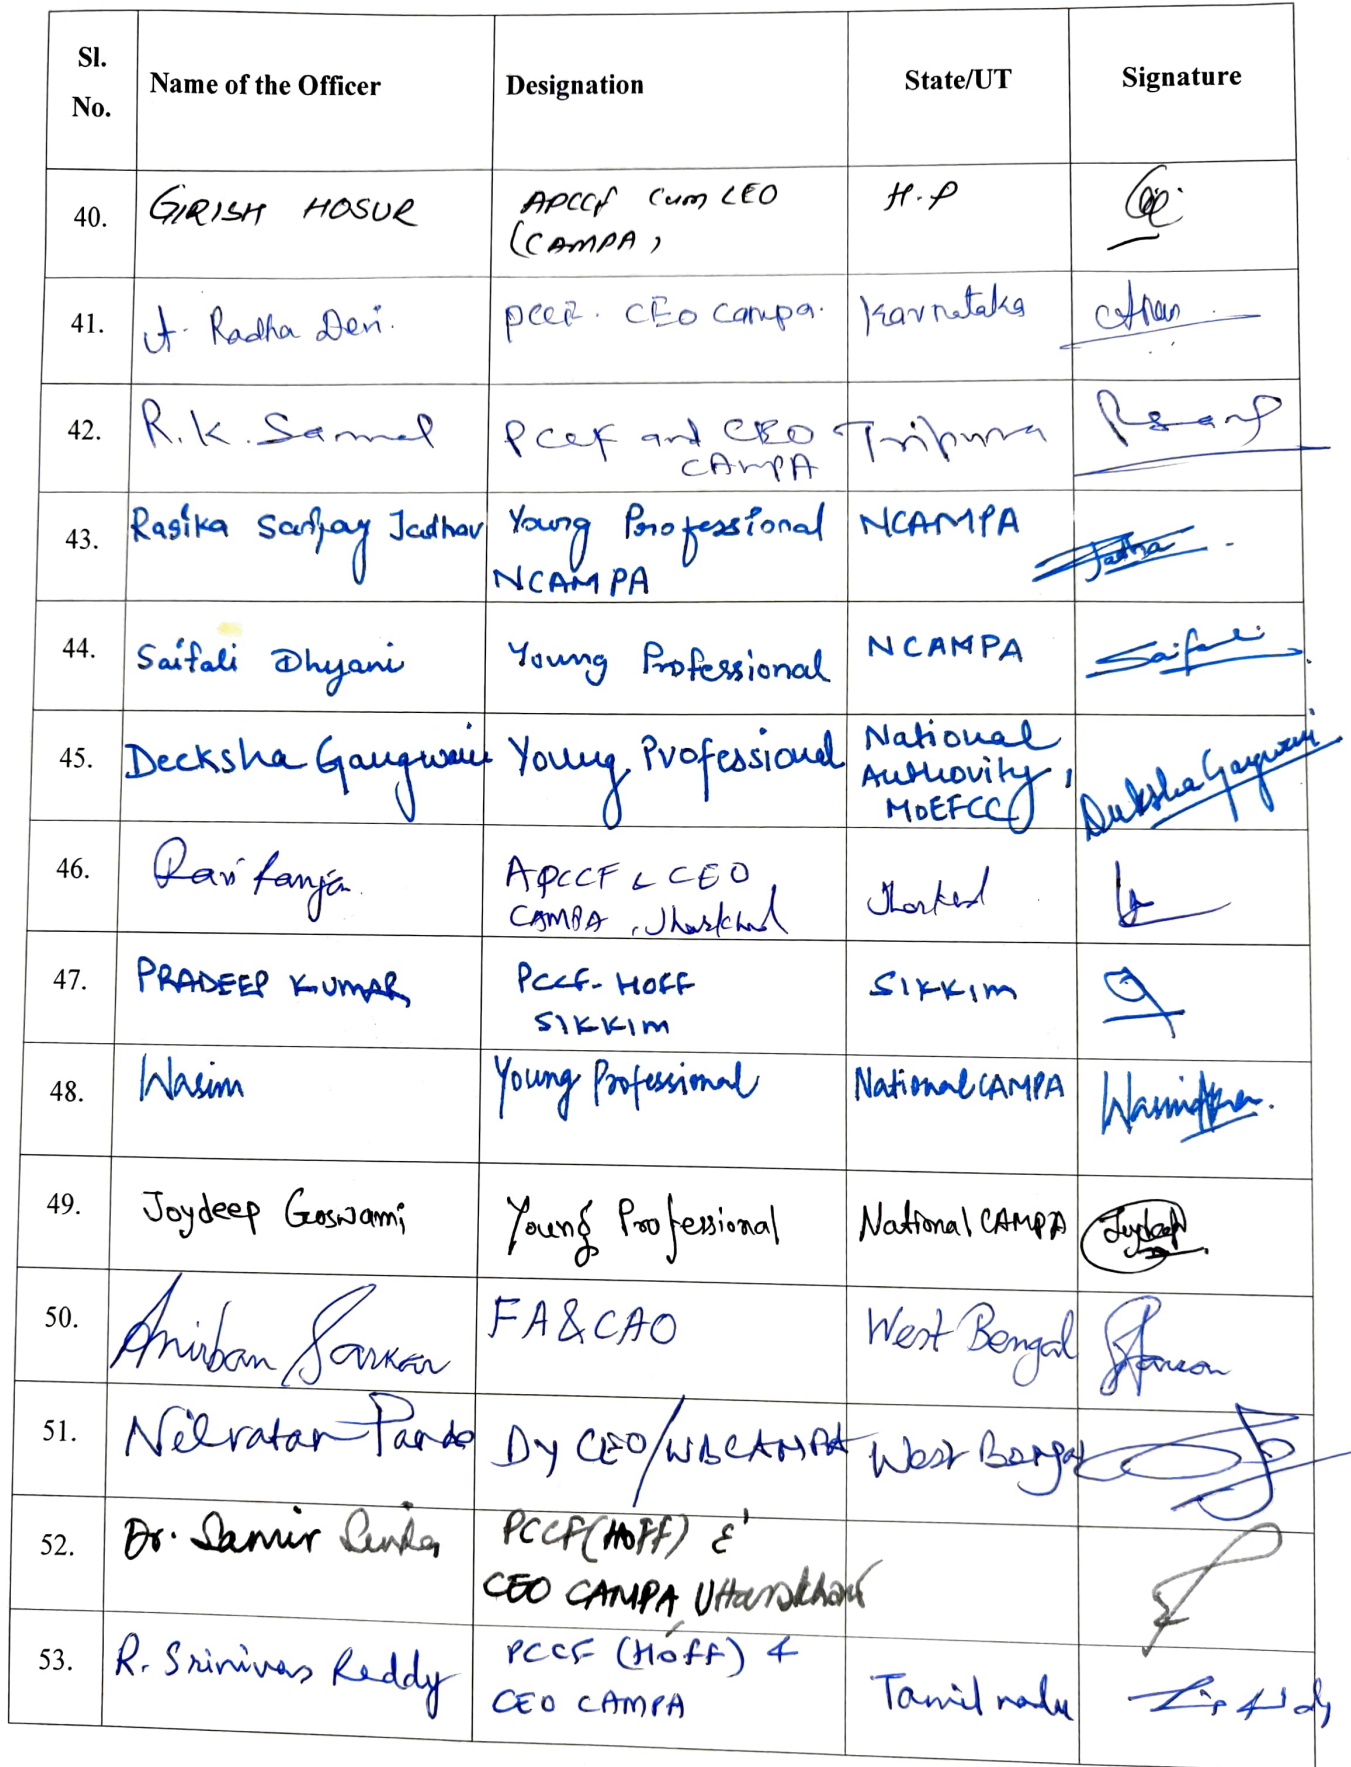 Sl. No. Name of the Officer Designation State/UT Signature
40. GIRISH HOSUR APCCF Cum CEO H.P
(CAMPA)
41. A. Radha Devi. PCCF. CEO Campa. Karnataka
42. R.K. Samal PCCF and CEO Tripura
CAMPA
43. Rasika Sanjay Jadhav Young Professional NCAMPA
NCAMPA
44. Saifali Dhyani Young Professional NCAMPA Saifali
45. Deeksha Gangwani Young Professional National
Authority,
MoEFCC
Deeksha Gangwani
46. Ravi Ranjan APCCF & CEO Jharkhand
CAMPA, Jharkhand
47. PRADEEP KUMAR PCCF-HOFF SIKKIM
SIKKIM
48. Wasim Young Professional National CAMPA
49. Joydeep Goswami Young Professional National CAMPA Joydeep
50. Anirban Sarkar FA & CAO West Bengal
51. Nilratan Panda Dy CEO/WBCAMPA West Bengal
52. Dr. Samir Sinha PCCF (HOFF) &
CEO CAMPA Uttarakhand
53. R. Srinivas Reddy PCCF (HOFF) & Tamil nadu
CEO CAMPA